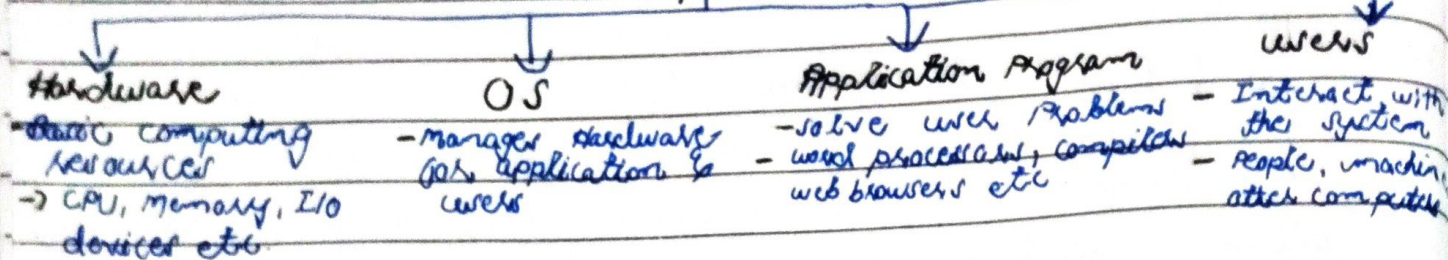 Hardware
- Basic computing
resources
-> CPU, Memory, I/O
devices etc
OS
- manages Hardware
for application &
users
Application Program
- solve user problems
- word processors, compilers
web browsers etc
users
- Interact with
the system
- People, machin,
other computer